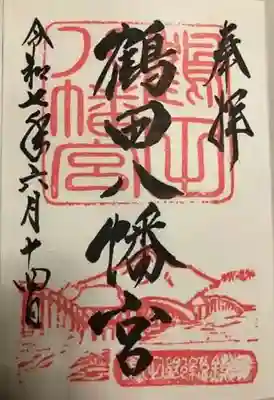 奉拝
鶴田八幡宮
令和七年六月十四日